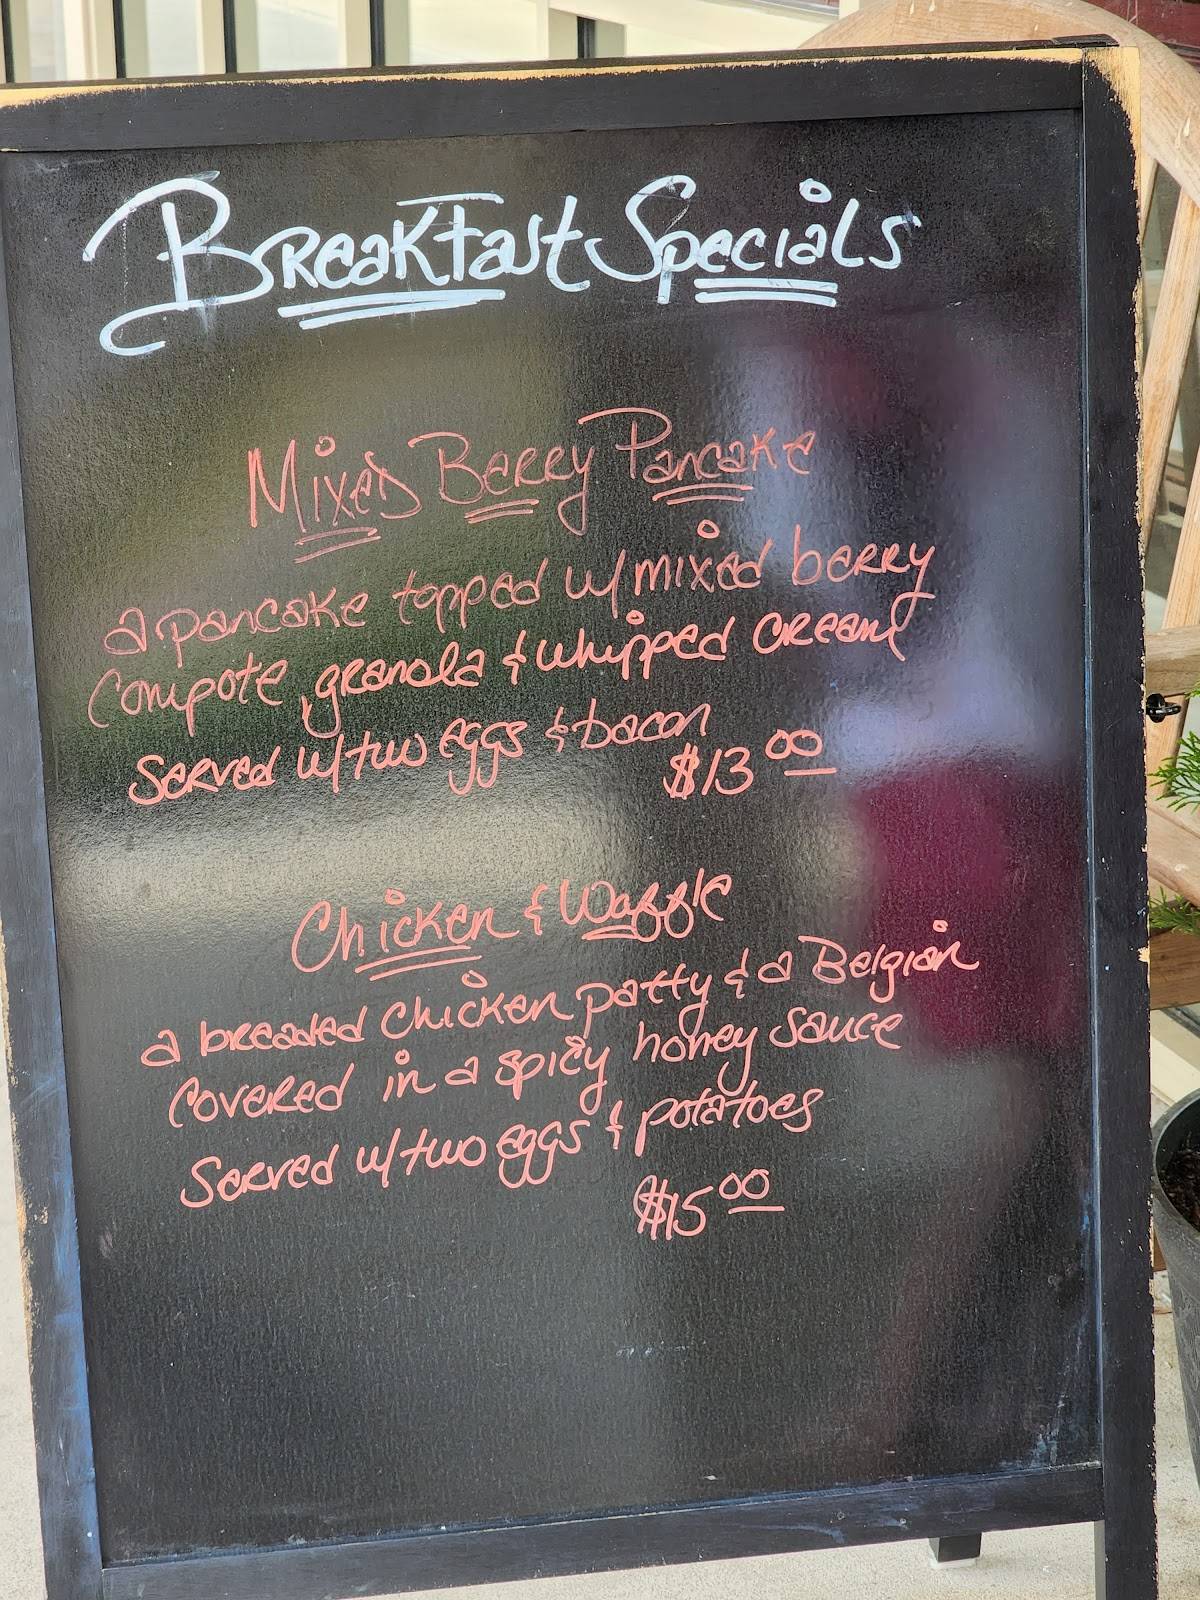 Breakfast Specials
Mixed Berry Pancake
a pancake topped w/ mixed berry
compote, granola & whipped cream
Served w/ two eggs & bacon
$13.00
Chicken & Waffle
a breaded chicken patty & a Belgian
covered in a spicy honey sauce
Served w/ two eggs & potatoes
$15.00